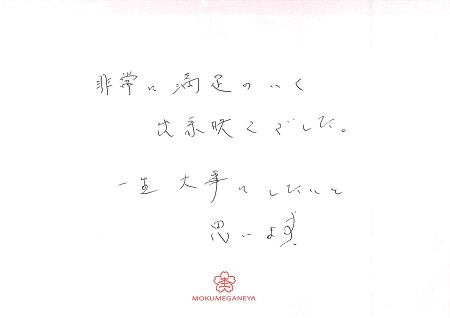 非常に満足のいく
出来映えでした。
一生大事にしたいと
思います。
MOKUMEGANEYA